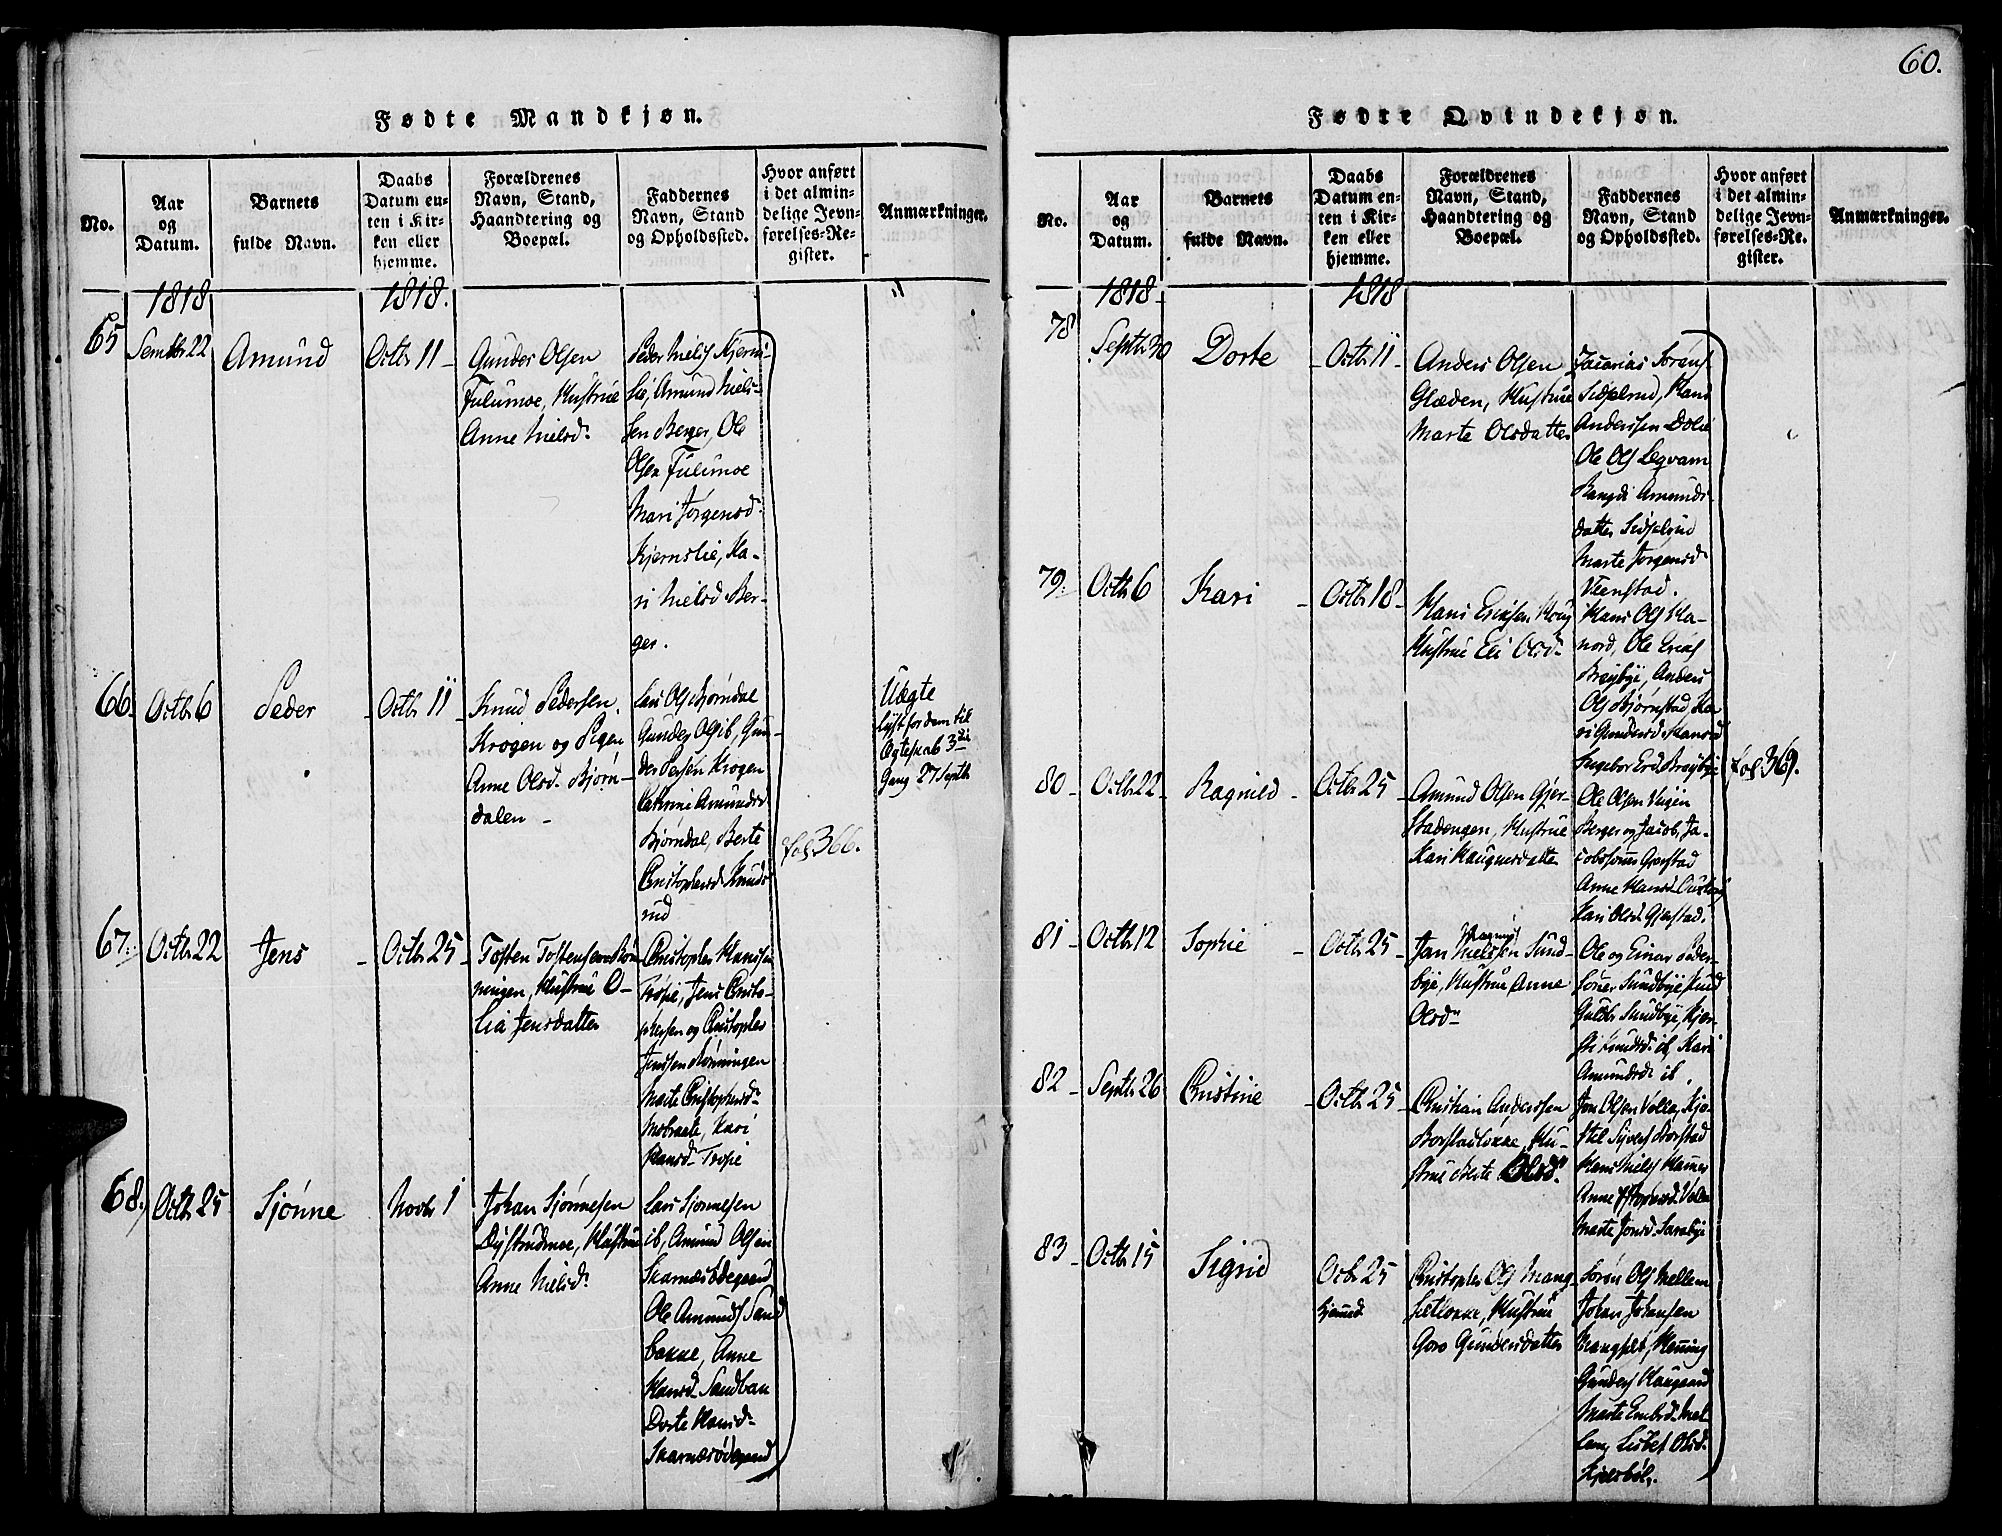 60.
Fødte Mandkjøn.
No.
Aar
og
Datum.
Barnets
fulde Navn.
Daabs
Datum en-
ten i Kir-
ken eller
hjemme.
Forældrenes
Navn, Stand,
Haandtering og
Boepæl.
Faddernes
Navn, Stand
og Opholdssted.
Hvor anført
i det almin-
delige Jevn-
førelses-Re-
gister.
Anmærkninger.
1818
1818.
65
22
Amund
Octbr 11
Gunder Olsen
Fulumoe, Hustrue
Anne Nielsdr
Peder Niels Kjerns-
lie, Amund Niel-
sen Berger, Ole
Olsen Fulumoe
Mari Jørgensd.
Kjernslie, Ka-
ri Nielsd. Ber-
ger.
66
Octbr 6
Peder
Octbr 11
Knud Pedersen
Krogen og Pigen
Anne Olsd. Bjørn-
dalen
Lars Ols Bjørndal
Gunder Ols ib, Gun-
der Krogen
Cathrine Amundsd
Bjørndal, Berte
Christophersd. Knuds
rud
fol 366.
Uægte
lyst for dem til
Ægteskab 3die
Gang 27 Septbr
67
Octbr 22
Jens
Octbr 25
Tosten Tostensen Røn
ningen, Hustrue O-
lia Jensdatter
Christopher Hansen
Tropie, Jens Christo-
phersen og Christopher
Jensen Rønningen
Marte Christophersd.
Mobraate, Kari
Hansd. Tropie
68
Octbr 25
Sjønne
Novbr 1
Johan Sjønnesen
Dystrudmoe, Hustrue
Anne Nielsdr
Lars Sjønnesen
ib, Amund Olsen
Skarnæsødegaard
Ole Amunds Sand
bakke, Anne
Hansd. Sandbak
Dorte Hansd.
Skarnæsødegaard
Fødte Qvindekjøn.
No.
Aar
og
Datum.
Barnets
fulde Navn.
Daabs
Datum en-
ten i Kir-
ken eller
hjemme.
Forældrenes
Navn, Stand,
Haandtering og
Boepæl.
Faddernes
Navn, Stand
og Opholdssted.
Hvor anført
i det almin-
delige Jevn-
førelses-Re-
gister.
Anmærkninger.
1818
1818
78
Septbr 30
Dorte
Octbr 11
Anders Olsen
Glæden, Hustrue
Marte Olsdatter
Zacarias Sørens
Sidselrud, Hans
Andersen Dolie
Ole Ols Legvam
Rangdi Amunds
datter Sidselrud
Marte Jørgensd
Veenstad.
79.
Octbr 6
Kari
Octbr 18
Hans Eriksen
Hustrue Eli Olsdr
Hans Ols Ka-
nord, Ole Eriks
Brøybye, Anders
Ols Bjørnstad, Ka-
ri Gundersd.
Ingebor Erd. Brøybye
fol 369.
80
Octbr 22
Ragnild
Octbr 25
Amund Olsen Gjer-
stadengen, Hustrue
Kari Haagensdatter
Ole Olsen
Berger og Jacob, Ja-
cobssønner Gjerstad
Anne Hansd.
Kari Olsd. Gjerstad.
81
Octbr 12
Sophie
Octbr 25
Jan Nielsen Sund-
bye, Hustrue Anne
Olsdr
Ole og Einar Peder-
sønner Sundbye, Knud
Guldbr Sundbye, Kjer-
sti Knudsd. ib, Kari
Amundsd. ib.
82
Septbr 26
Christine
Octbr 25
Christian Andersen
Borstadløkke, Hu-
strue Berte Olsdr
Jon Olsen Volla, Kjø-
stel Syvers Borstad
Hans Niels
Anne
Marte Jonsd.
83
Octbr 15
Sigrid
Octbr 25
hjemmed.
Christopher Ols Mang-
setløkke, Hustrue
Goro Gundersdatter
Søren Ols Mellem
Johan Johansen
Mangset, Henning
Gunders Haugaard
Marte Embrd. Mel-
lem, Lisbet Olsd.
Kjelsbøl.